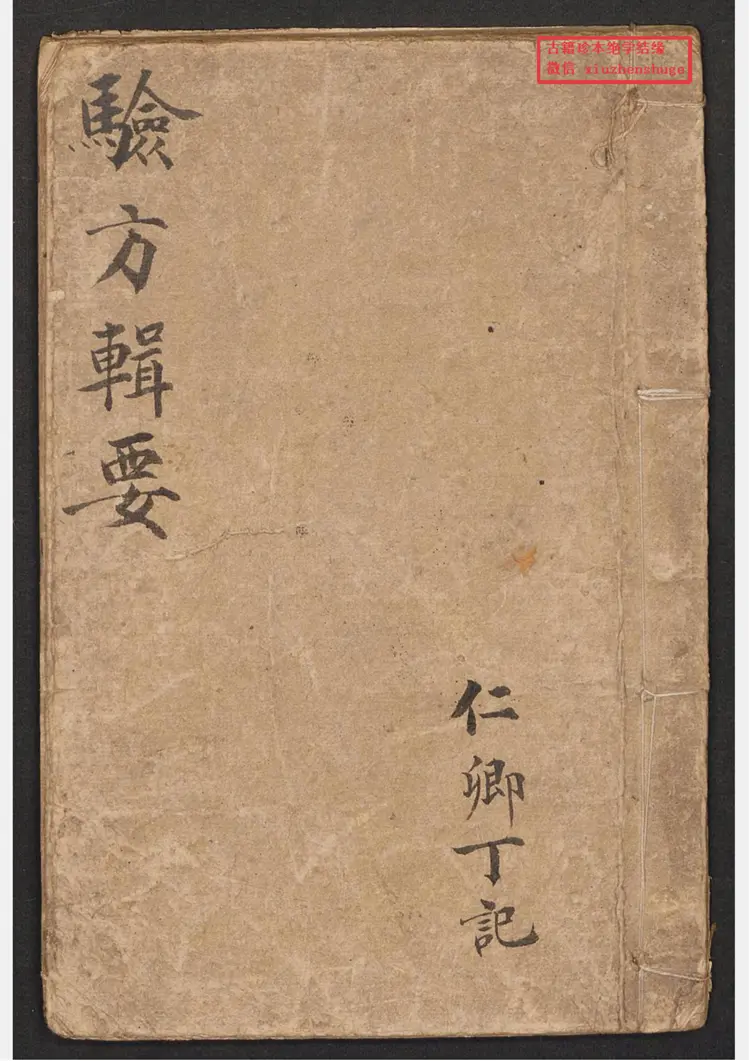 古籍珍本绝学结缘
微信 xiuzhenshuge
驗方輯要
仁卿丁記